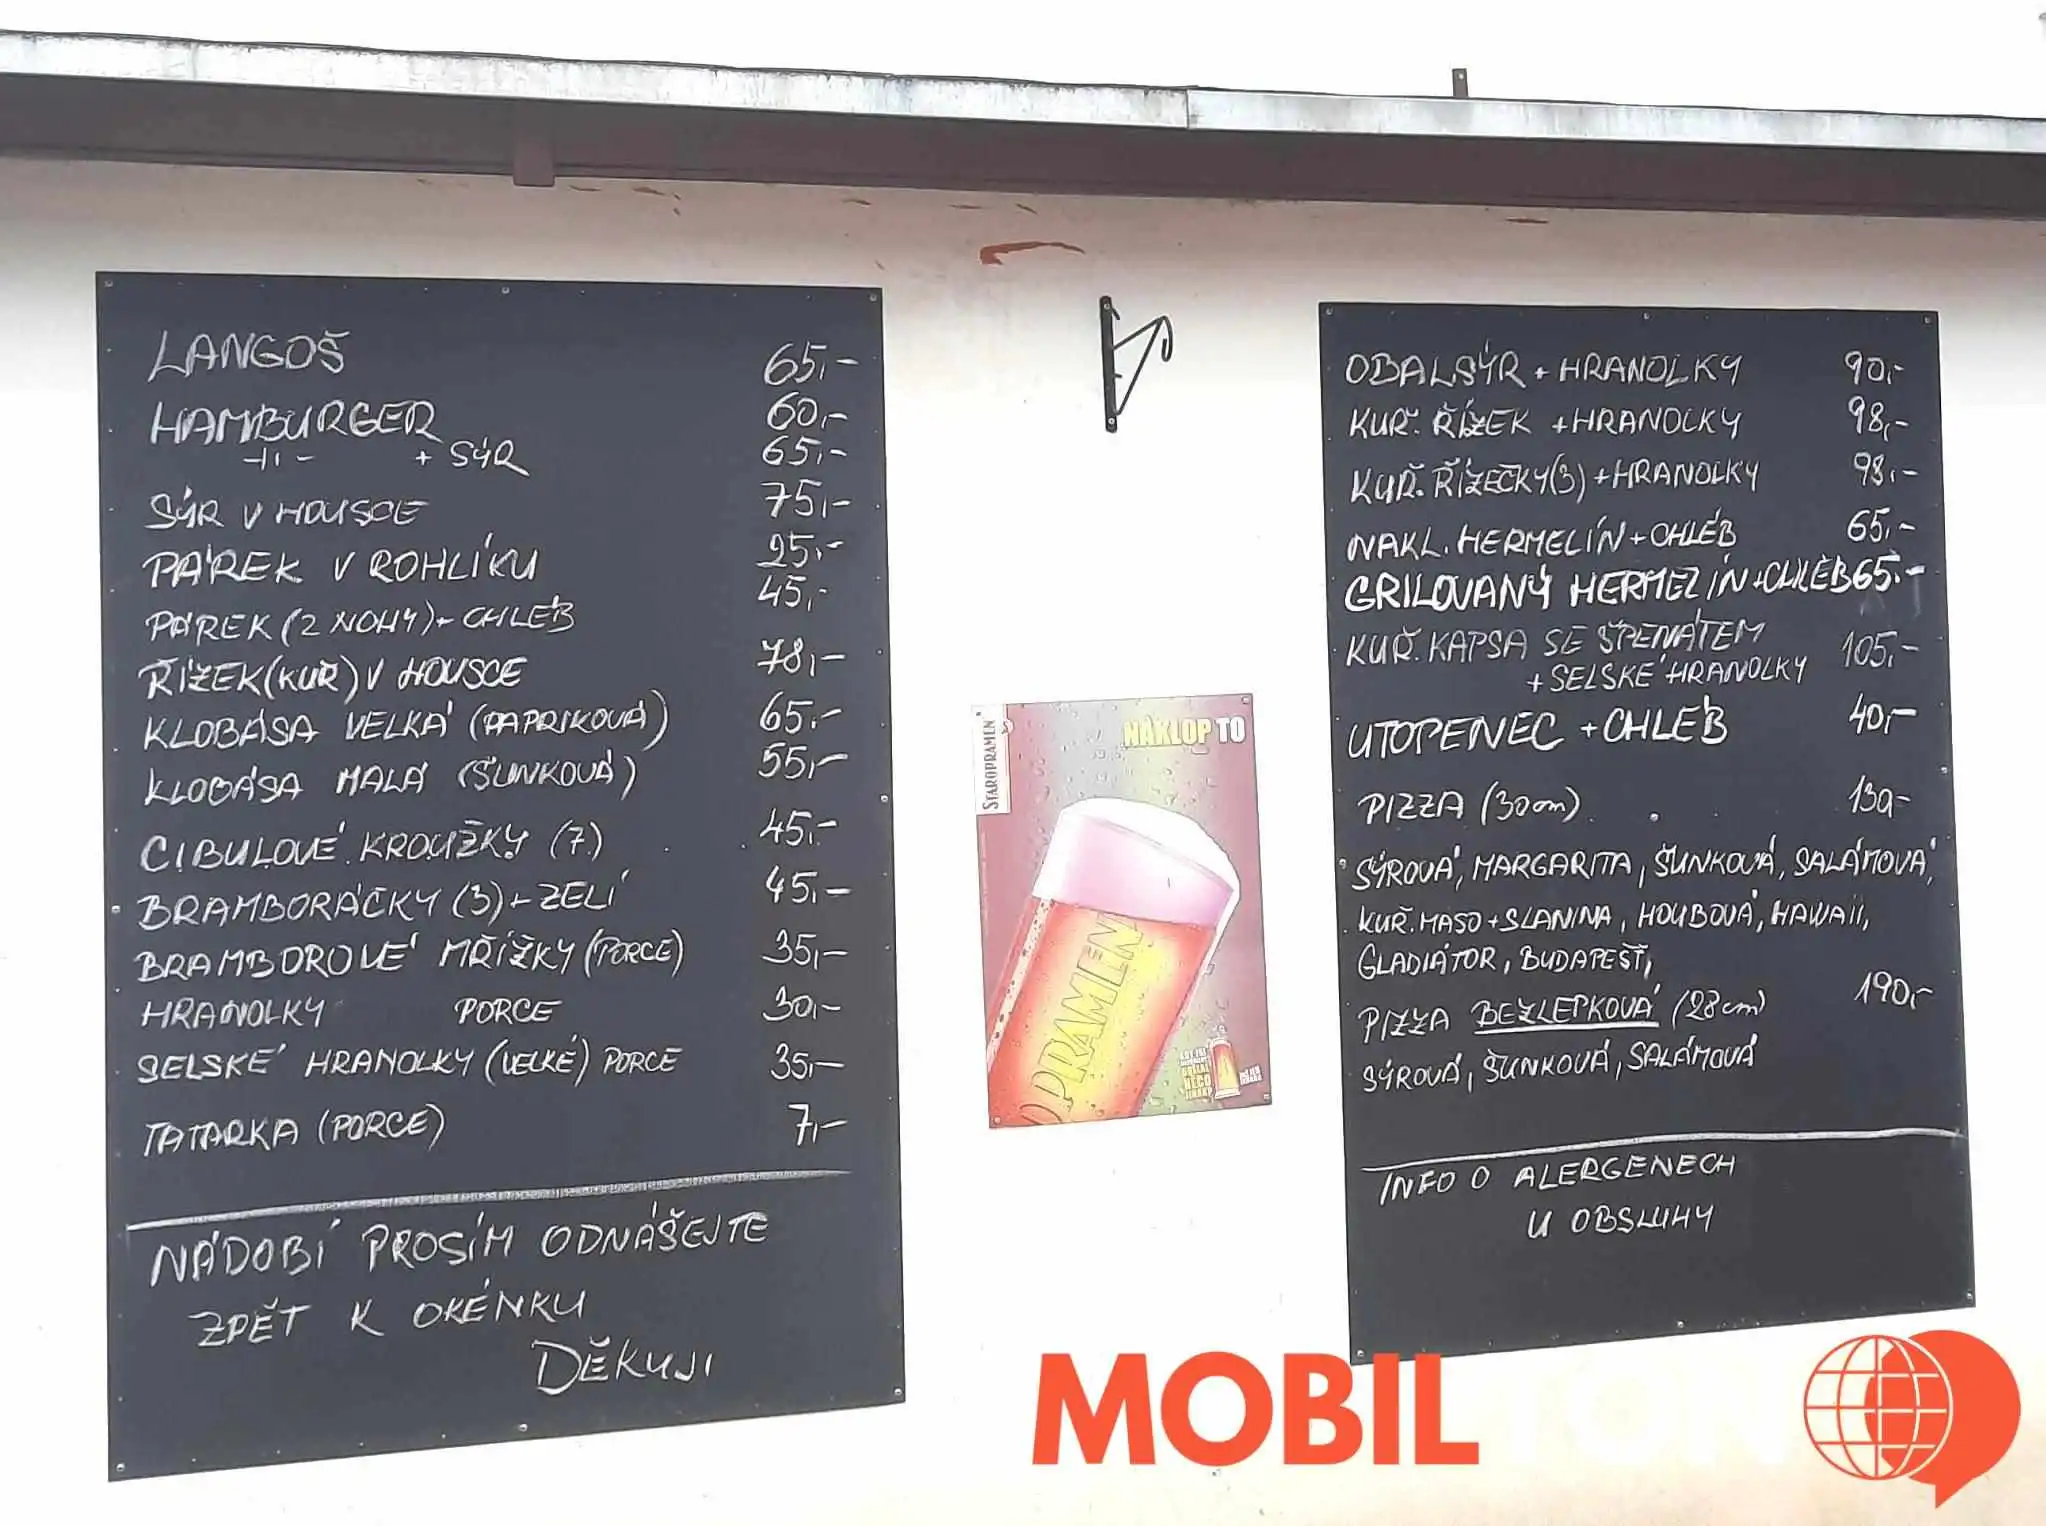 LANGOŠ 65,-
HAMBURGER 60,-
-11- + SÝR 65,-
SÝR V HOUSCE 75,-
PÁREK V ROHLÍKU 25,-
PÁREK (2 NOHY) + CHLÉB 45,-
ŘÍZEK (KUŘ) V HOUSCE 78,-
KLOBÁSA VELKÁ (PAPRIKOVÁ) 65,-
KLOBÁSA MALÁ (ŠUNKOVÁ) 55,-
CIBULOVÉ KROUŽKY (7) 45,-
BRAMBORÁČKY (3) + ZELÍ 45,-
BRAMBOROVÉ MŘÍŽKY (PORCE) 35,-
HRANOLKY PORCE 30,-
SELSKÉ HRANOLKY (VELKÉ) PORCE 35,-
TATARKA (PORCE) 7,-
NÁDOBÍ PROSÍM ODNÁŠEJTE
ZPĚT K OKÉNKU
DĚKUJI
STAROPRAMEN
NAKLOP TO
OPRAMEN
OBAL.SÝR + HRANOLKY 90,-
KUŘ. ŘÍZEK + HRANOLKY 98,-
KUŘ. ŘÍZEČKY (3) + HRANOLKY 98,-
NAKL. HERMELÍN + CHLÉB 65,-
GRILOVANÝ HERMELÍN + CHLÉB 65,-
KUŘ. KAPSA SE ŠPENÁTEM 105,-
+ SELSKÉ HRANOLKY
UTOPENEC + CHLÉB 40,-
PIZZA (30cm) 130,-
SÝROVÁ, MARGARITA, ŠUNKOVÁ, SALÁMOVÁ,
KUŘ. MASO + SLANINA, HOUBOVÁ, HAWAII,
GLADIÁTOR, BUDAPEŠŤ,
PIZZA BEZLEPKOVÁ (28cm) 190,-
SÝROVÁ, ŠUNKOVÁ, SALÁMOVÁ
INFO O ALERGENECH
U OBSLUHY
MOBIL